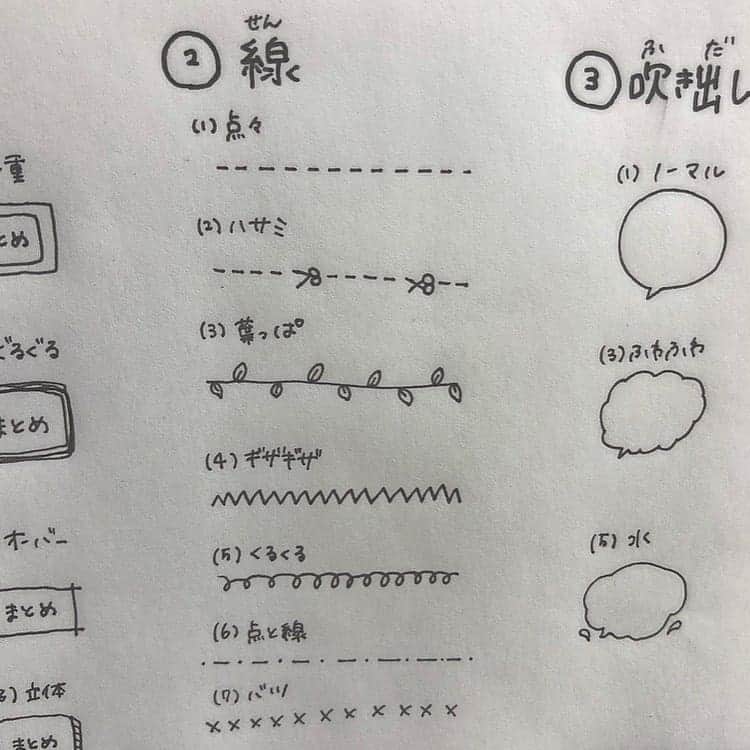 重
とめ
ぐるぐる
まとめ
オーバー
まとめ
) 立体
まとめ
せん
② 線
(1) 点々
(2) ハサミ
(3) 葉っぱ
(4) ギザギザ
(5) くるくる
(6) 点と線
(7) バツ
ふ だ
③ 吹き出し
(1) ノーマル
(3) ふわふわ
(5) 水